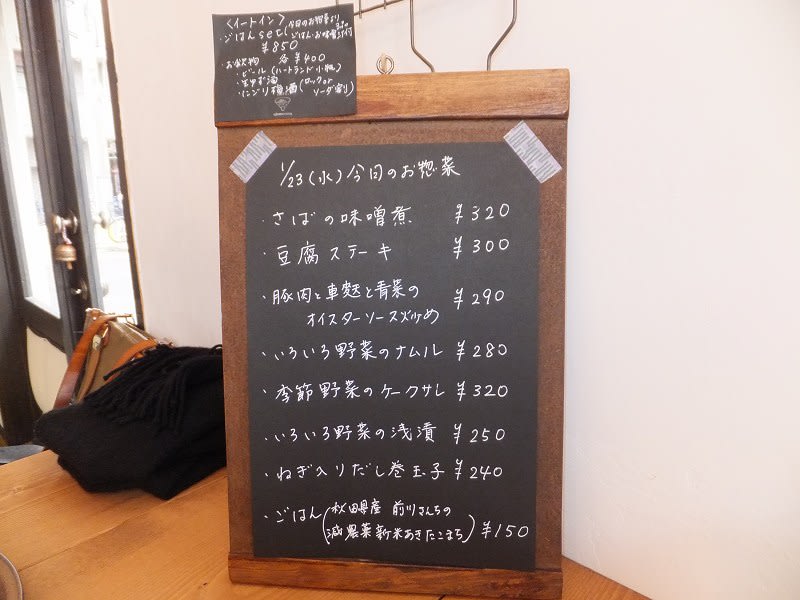 〈イートイン〉
・ごはんset(今日のお惣菜より
ごはん・お味噌汁付
¥850
・お飲物 各¥400
・ビール(ハートランド小瓶)
・ゆず酒
・リンゴり梅酒(ロックor
ソーダ割り)
1/23(水)今日のお惣菜
・さばの味噌煮 ¥320
・豆腐ステーキ ¥300
・豚肉と車麩と青菜の
オイスターソース炒め ¥290
・いろいろ野菜のナムル ¥280
・季節野菜のケークサレ ¥320
・いろいろ野菜の浅漬 ¥250
・ねぎ入りだし巻玉子 ¥240
・ごはん(秋田県産 前川さんちの
減農薬新米あきたこまち) ¥150